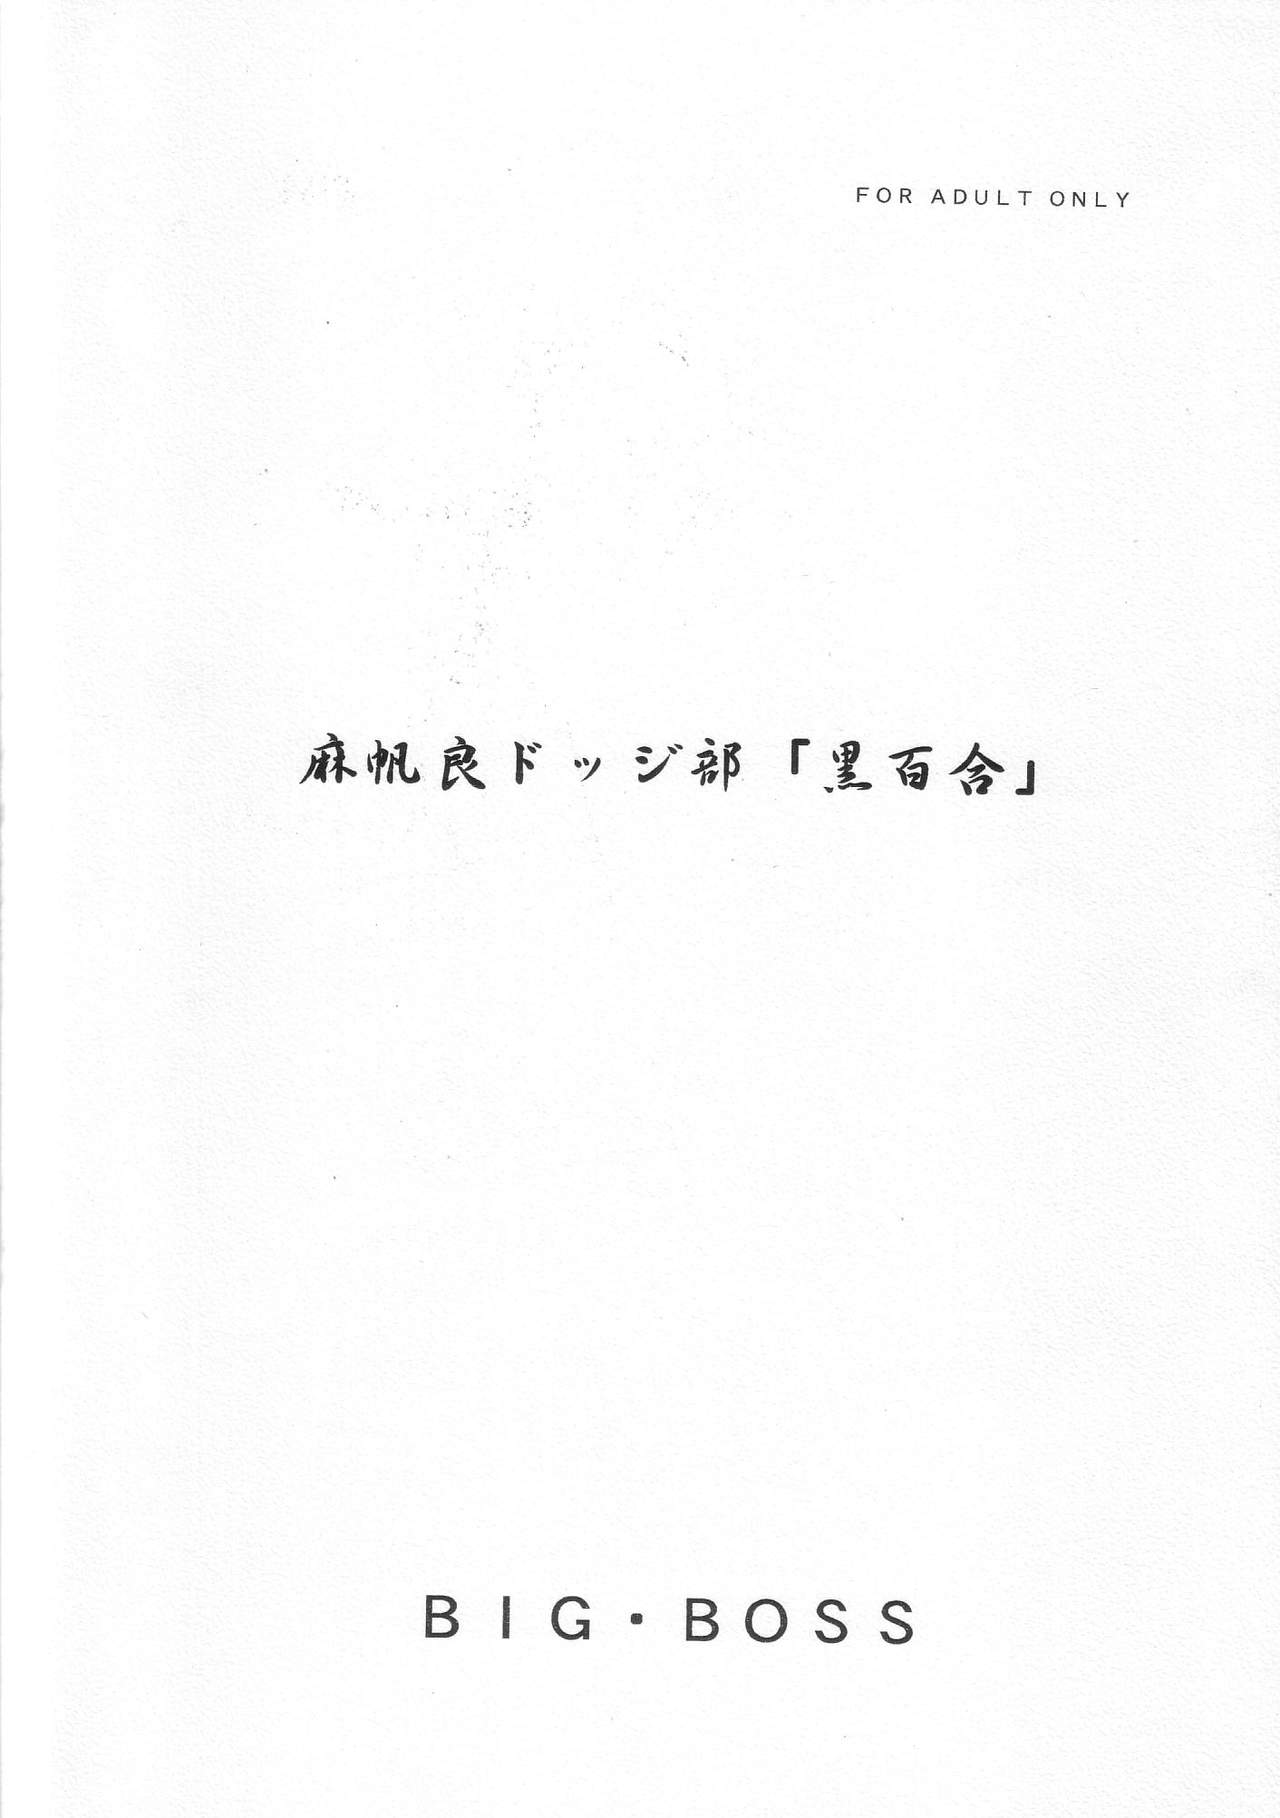 FOR ADULT ONLY
麻帆良ドッジ部「黒百合」
BIG・BOSS